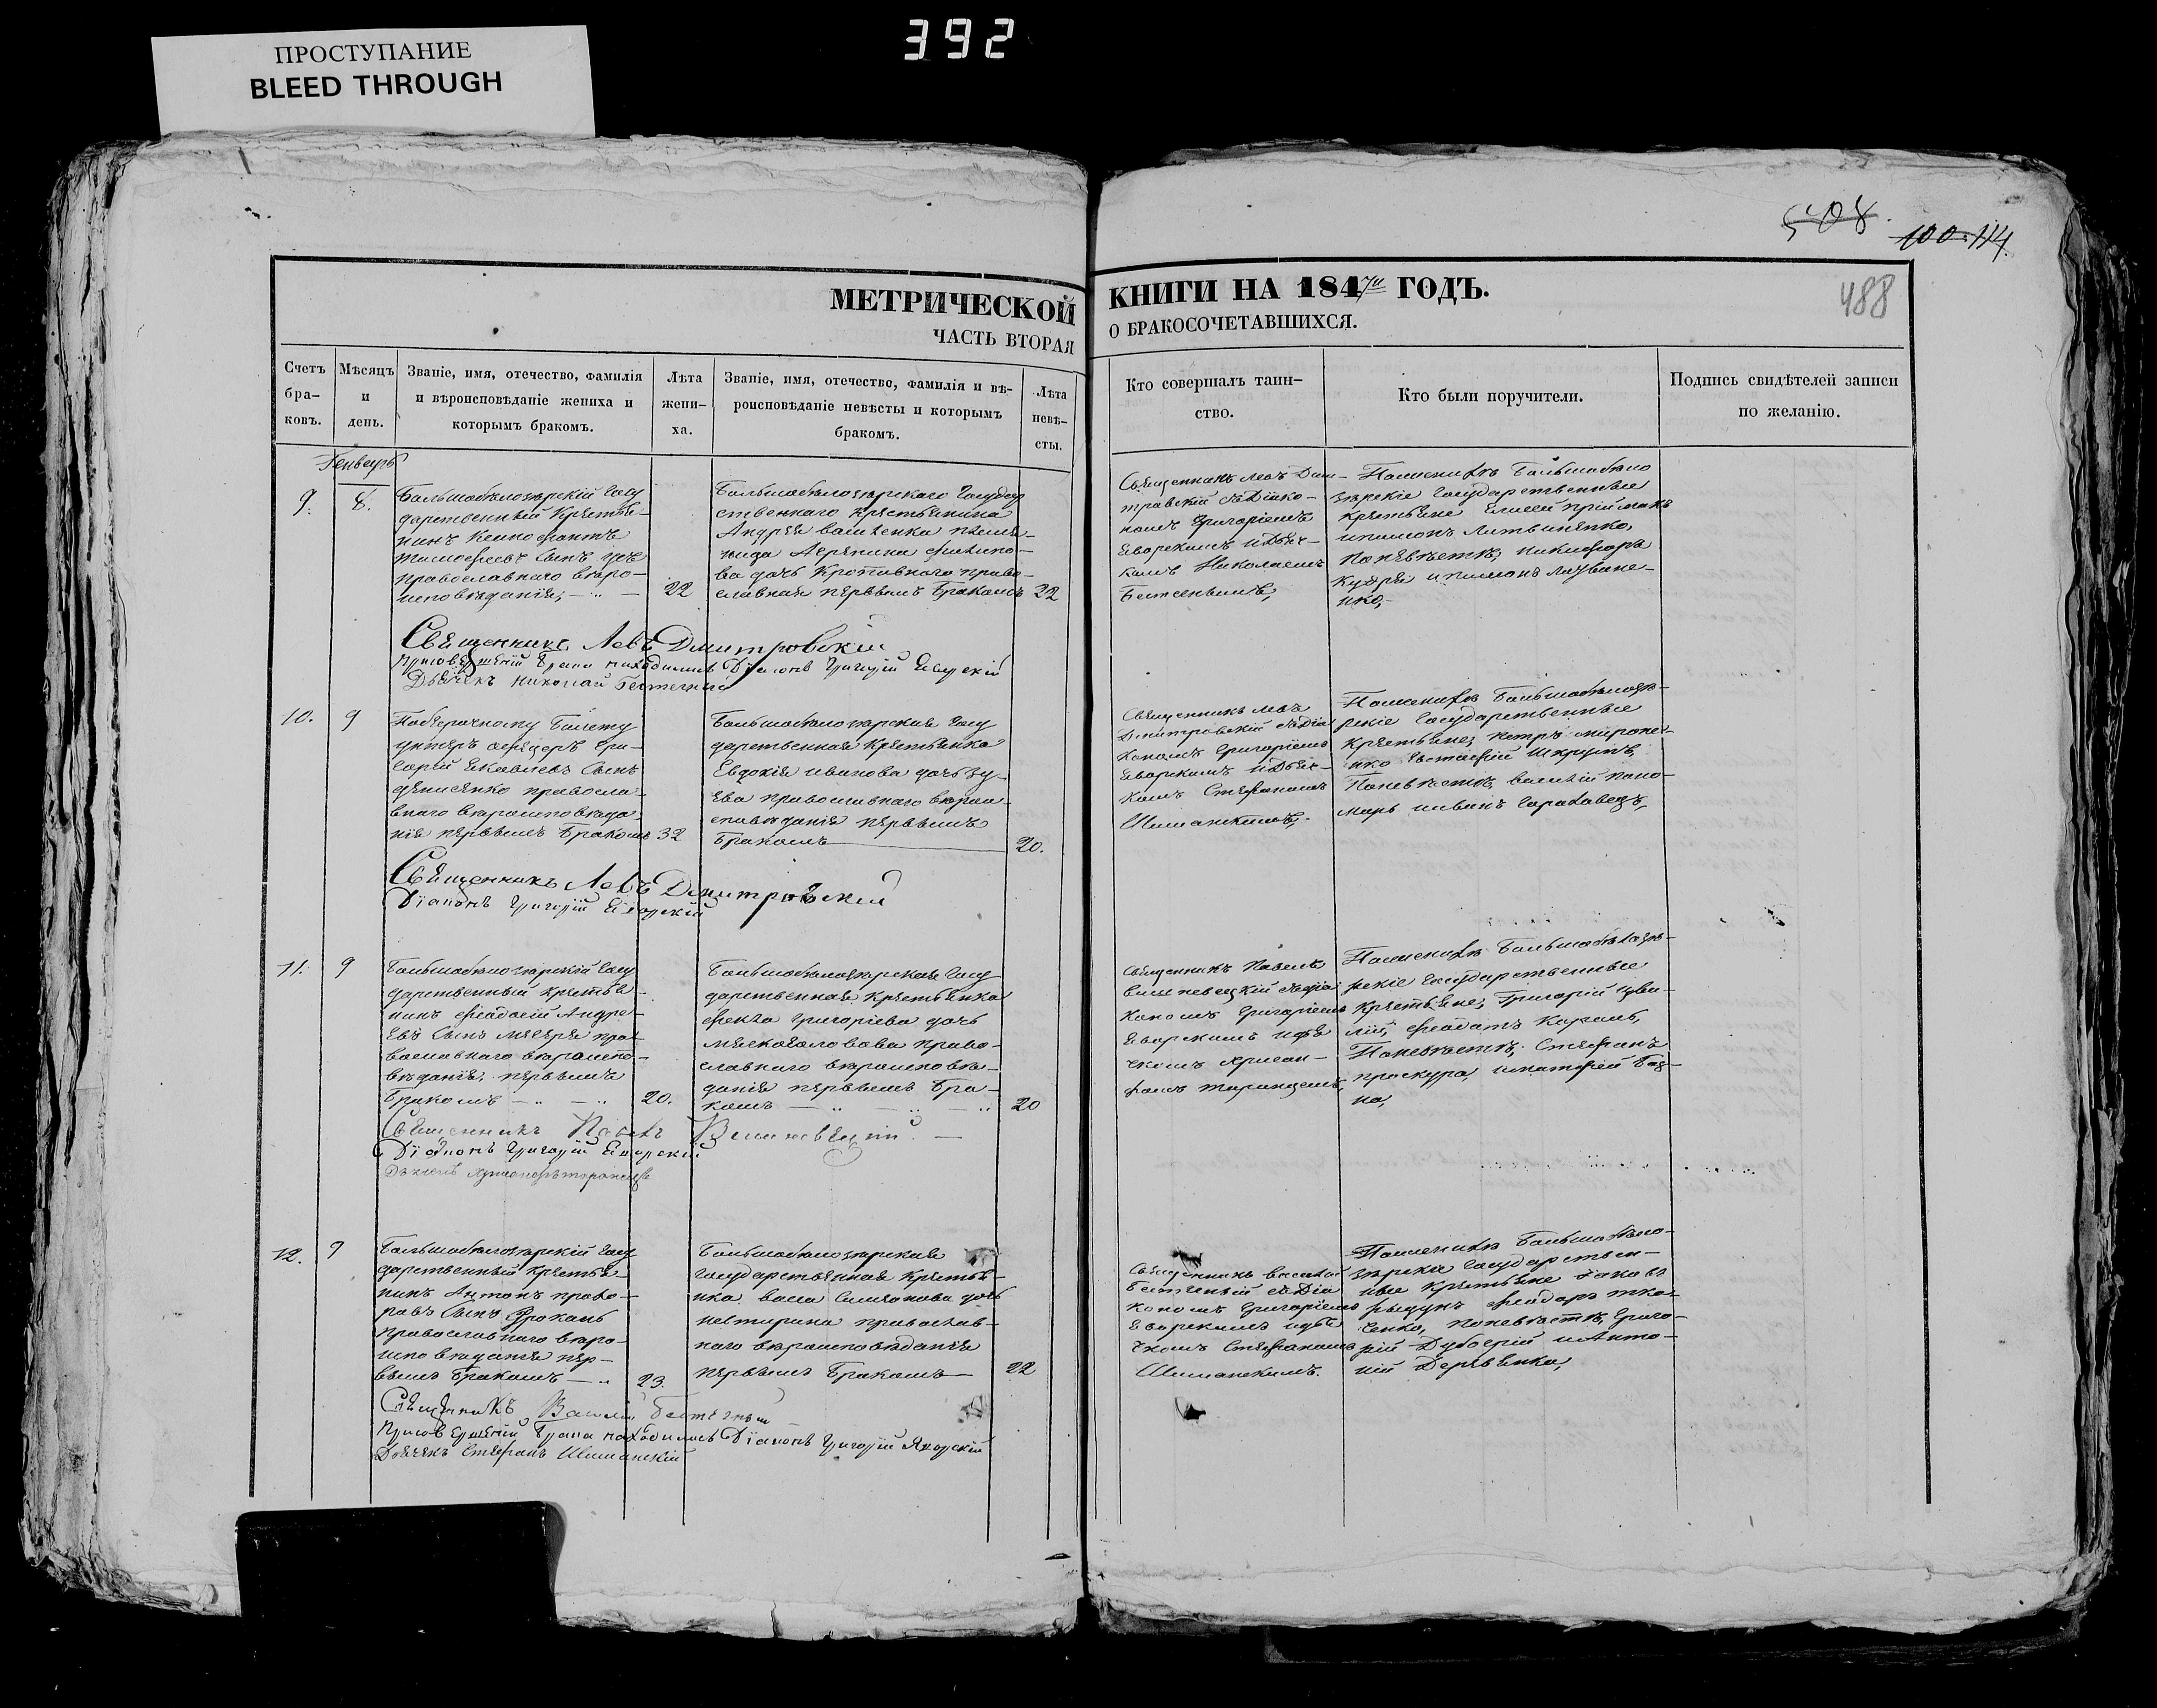 392
ПРОСТУПАНИЕ
BLEED THROUGH
508.
100. 114.
488
МЕТРИЧЕСКОЙ
ЧАСТЬ ВТОРАЯ
КНИГИ НА 1847й ГОДЪ.
О БРАКОСОЧЕТАВШИХСЯ.
Счетъ бра-
ковъ.
Мѣсяцъ и
день.
Званіе, имя, отечество, фамилія
и вѣроисповѣданіе жениха и
которымъ бракомъ.
Лѣта
жени-
ха.
Званіе, имя, отечество, фамилія и вѣ-
роисповѣданіе невѣсты и которымъ
бракомъ.
Лѣта
невѣ-
сты.
Кто совершалъ таин-
ство.
Кто были поручители.
Подпись свидѣтелей записи
по желанію.
Генварь
9.
8.
Большобѣлозерскій госу
дарственный крестья-
нинъ Ксенофонтъ
Тимофеевъ сынъ
православнаго вѣро-
исповѣданія,
22
Большобѣлозерскаго государ
ственнаго крестьянина
Андрея
дочь Кропивного право-
славная первымъ бракомъ
22
Священникъ Левъ Дми-
тровскій съ Діако-
номъ Григоріемъ
Еворскимъ и Дьяч-
комъ Николаемъ
Бестенымъ,
По женихѣ Большобѣло
зерскіе государственные
крестьяне Елисей Приймакъ
и Пимонъ Литвиненко,
По невѣстѣ, Никифоръ
Кудря и Пимонъ
нко,
Священникъ Левъ Дмитровскій
При совершеніи брака находились Діаконъ Григорій Еворскій
Дьячекъ Николай
10.
9
По билету
унтеръ офицеръ Гри-
горій Яковлевъ сынъ
православ
внаго вѣроисповѣда
нія первымъ бракомъ
32
Большобѣлозерская госу
дарственная крестьянка
Евдокія Иванова дочь Зу-
ева православнаго вѣрои-
споведанія первымъ
бракомъ
20.
Священникъ Левъ
Дмитровскій съ Діа
кономъ Григоріемъ
Еворскимъ и Дьяч-
комъ Стефаномъ
Шиманскимъ,
По женихѣ Большобѣлозе-
рскіе государственные
крестьяне, Петръ Мироне-
нко Евстафій Шкрутъ,
По невѣстѣ, Василій Поно-
марь и Иванъ
Священникъ Левъ Дмитровскій
Діаконъ Григорій Еворскій
11.
9
Большобѣлозерскій госу
дарственный крестья-
нинъ Феодосій Андре-
евъ сынъ пра-
вославнаго вѣроиспо-
вѣданія, первымъ
бракомъ
20.
Большобѣлозерская госу
дарственная крестьянка
Фекла Григоріева дочь
право-
славнаго вѣроисповѣ-
данія первымъ бра-
комъ
20
Священникъ Павелъ
Вишневецкій съ Діа
кономъ Григоріемъ
Еворскимъ и Дья
чкомъ Хрисан-
фомъ
По женихѣ Большобѣлозе-
рскіе государственные
крестьяне, Григорій
Феодотъ Король,
По невѣстѣ, Стефанъ
Проскура, и
Священникъ Павелъ Вишневецкій
Діаконъ Григорій Еворскій
12.
9
Большобѣлозерскій госу
дарственный крестья-
нинъ Антонъ
сынъ
православнаго вѣро-
исповѣданія пер-
вымъ бракомъ
23.
Большобѣлозерская
государственная крестья-
нка Симеонова дочь
православ-
наго вѣроисповѣданія
первымъ бракомъ
22
Священникъ Василій
Бестеный съ Діа
кономъ Григоріемъ
Еворскимъ и Дья
чкомъ Стефаномъ
Шиманскимъ.
По женихѣ Большобѣло-
зерскіе государствен-
ные крестьяне Іаковъ
Феодоръ Тка-
ченко, по невѣстѣ, Григо-
рій и Анто-
ній Деревянко,
Священникъ Василій
При совершеніи брака находились Діаконъ Григорій Яворскій
Дьячекъ Стефанъ Шиманскій